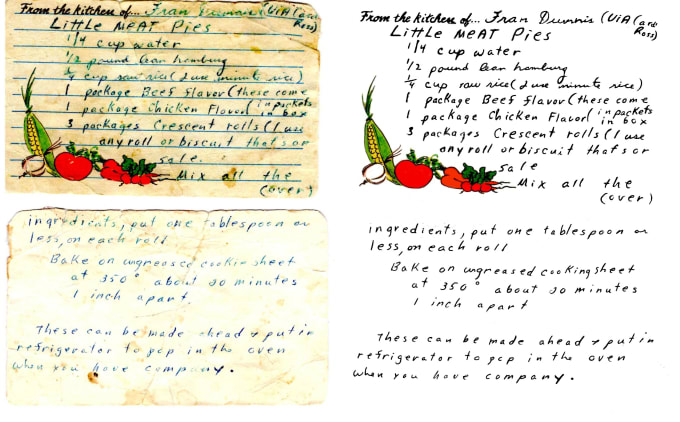 From the kitchen of... Fran (ViA
Ross)
LittLe MEAT Pies
1/4 cup water
1/2 pound lean hamburg
1/4 cup raw rice (I use minute rice)
1 package Beef flavor (these come
1 package Chicken Flavor (in packets
in box
3 packages Crescent rolls (I use
any roll or biscuit that's on
sale.
Mix all the
(over)
ingredients, put one tablespoon or
less, on each roll
Bake on ungreased cookie sheet
at 350° about 20 minutes
1 inch apart.
These can be made ahead + put in
refrigerator to pop in the oven
when you have company.
From the kitchen of... Fran (ViA
Ross)
LittLe MEAT Pies
1/4 cup water
1/2 pound lean hamburg
1/4 cup raw rice (I use minute rice)
1 package Beef flavor (these come
1 package Chicken Flavor (in packets
in box
3 packages Crescent rolls (I use
any roll or biscuit that's on
sale
Mix all the
(over)
ingredients, put one tablespoon or
less, on each roll
Bake on ungreased cooking sheet
at 350° about 20 minutes
1 inch apart
These can be made ahead + put in
refrigerator to pop in the oven
when you have company.